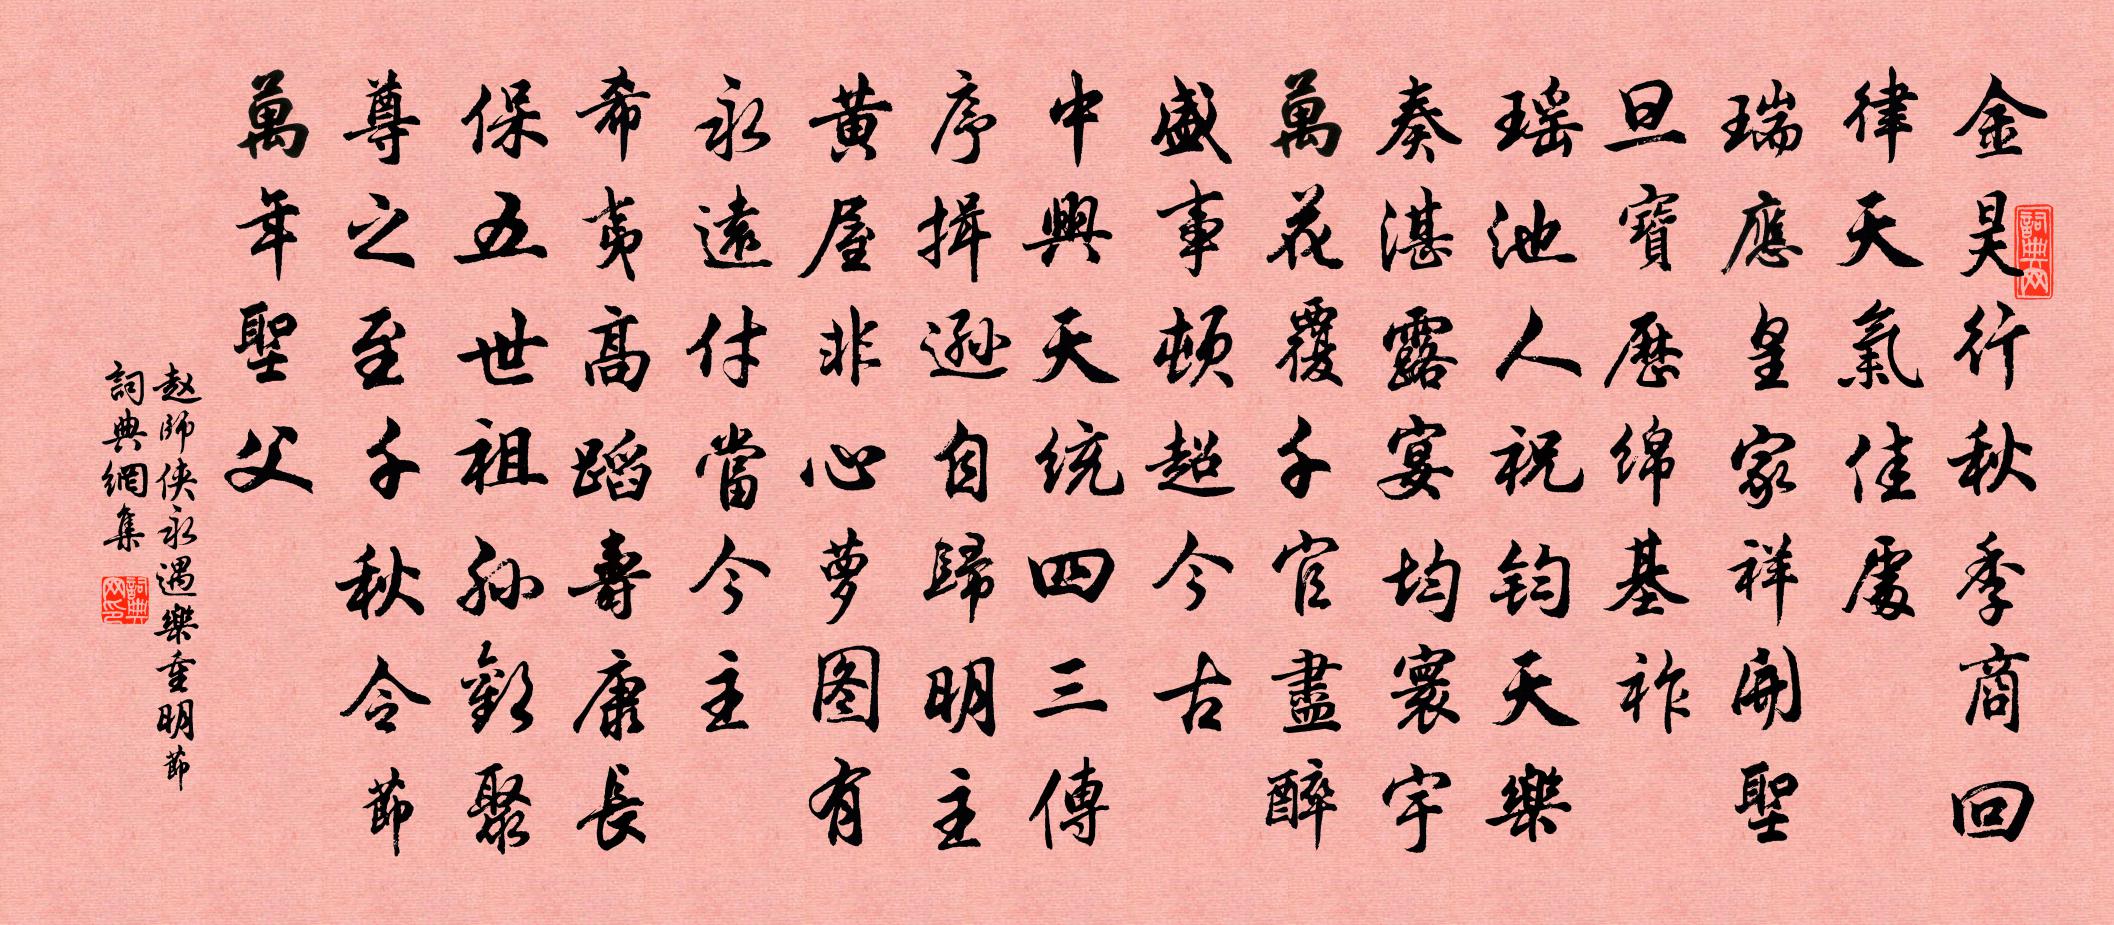 詞典网
金昊行秋季商回
律天氣佳處
瑞應皇家祥開聖
旦寶歷绵基祚
瑶池人祝鈞天樂
奏湛露宴均寰宇
萬花覆千官盡醉
盛事頓超今古
中興天統四三傳
序揖遜自歸明主
黄屋非心萝图有
永遠付當今主
希夷高蹈壽康長
保五世祖孙歡聚
尊之至千秋令節
萬年聖父
赵師侠永遇樂重明節
詞典網集
詞典网印